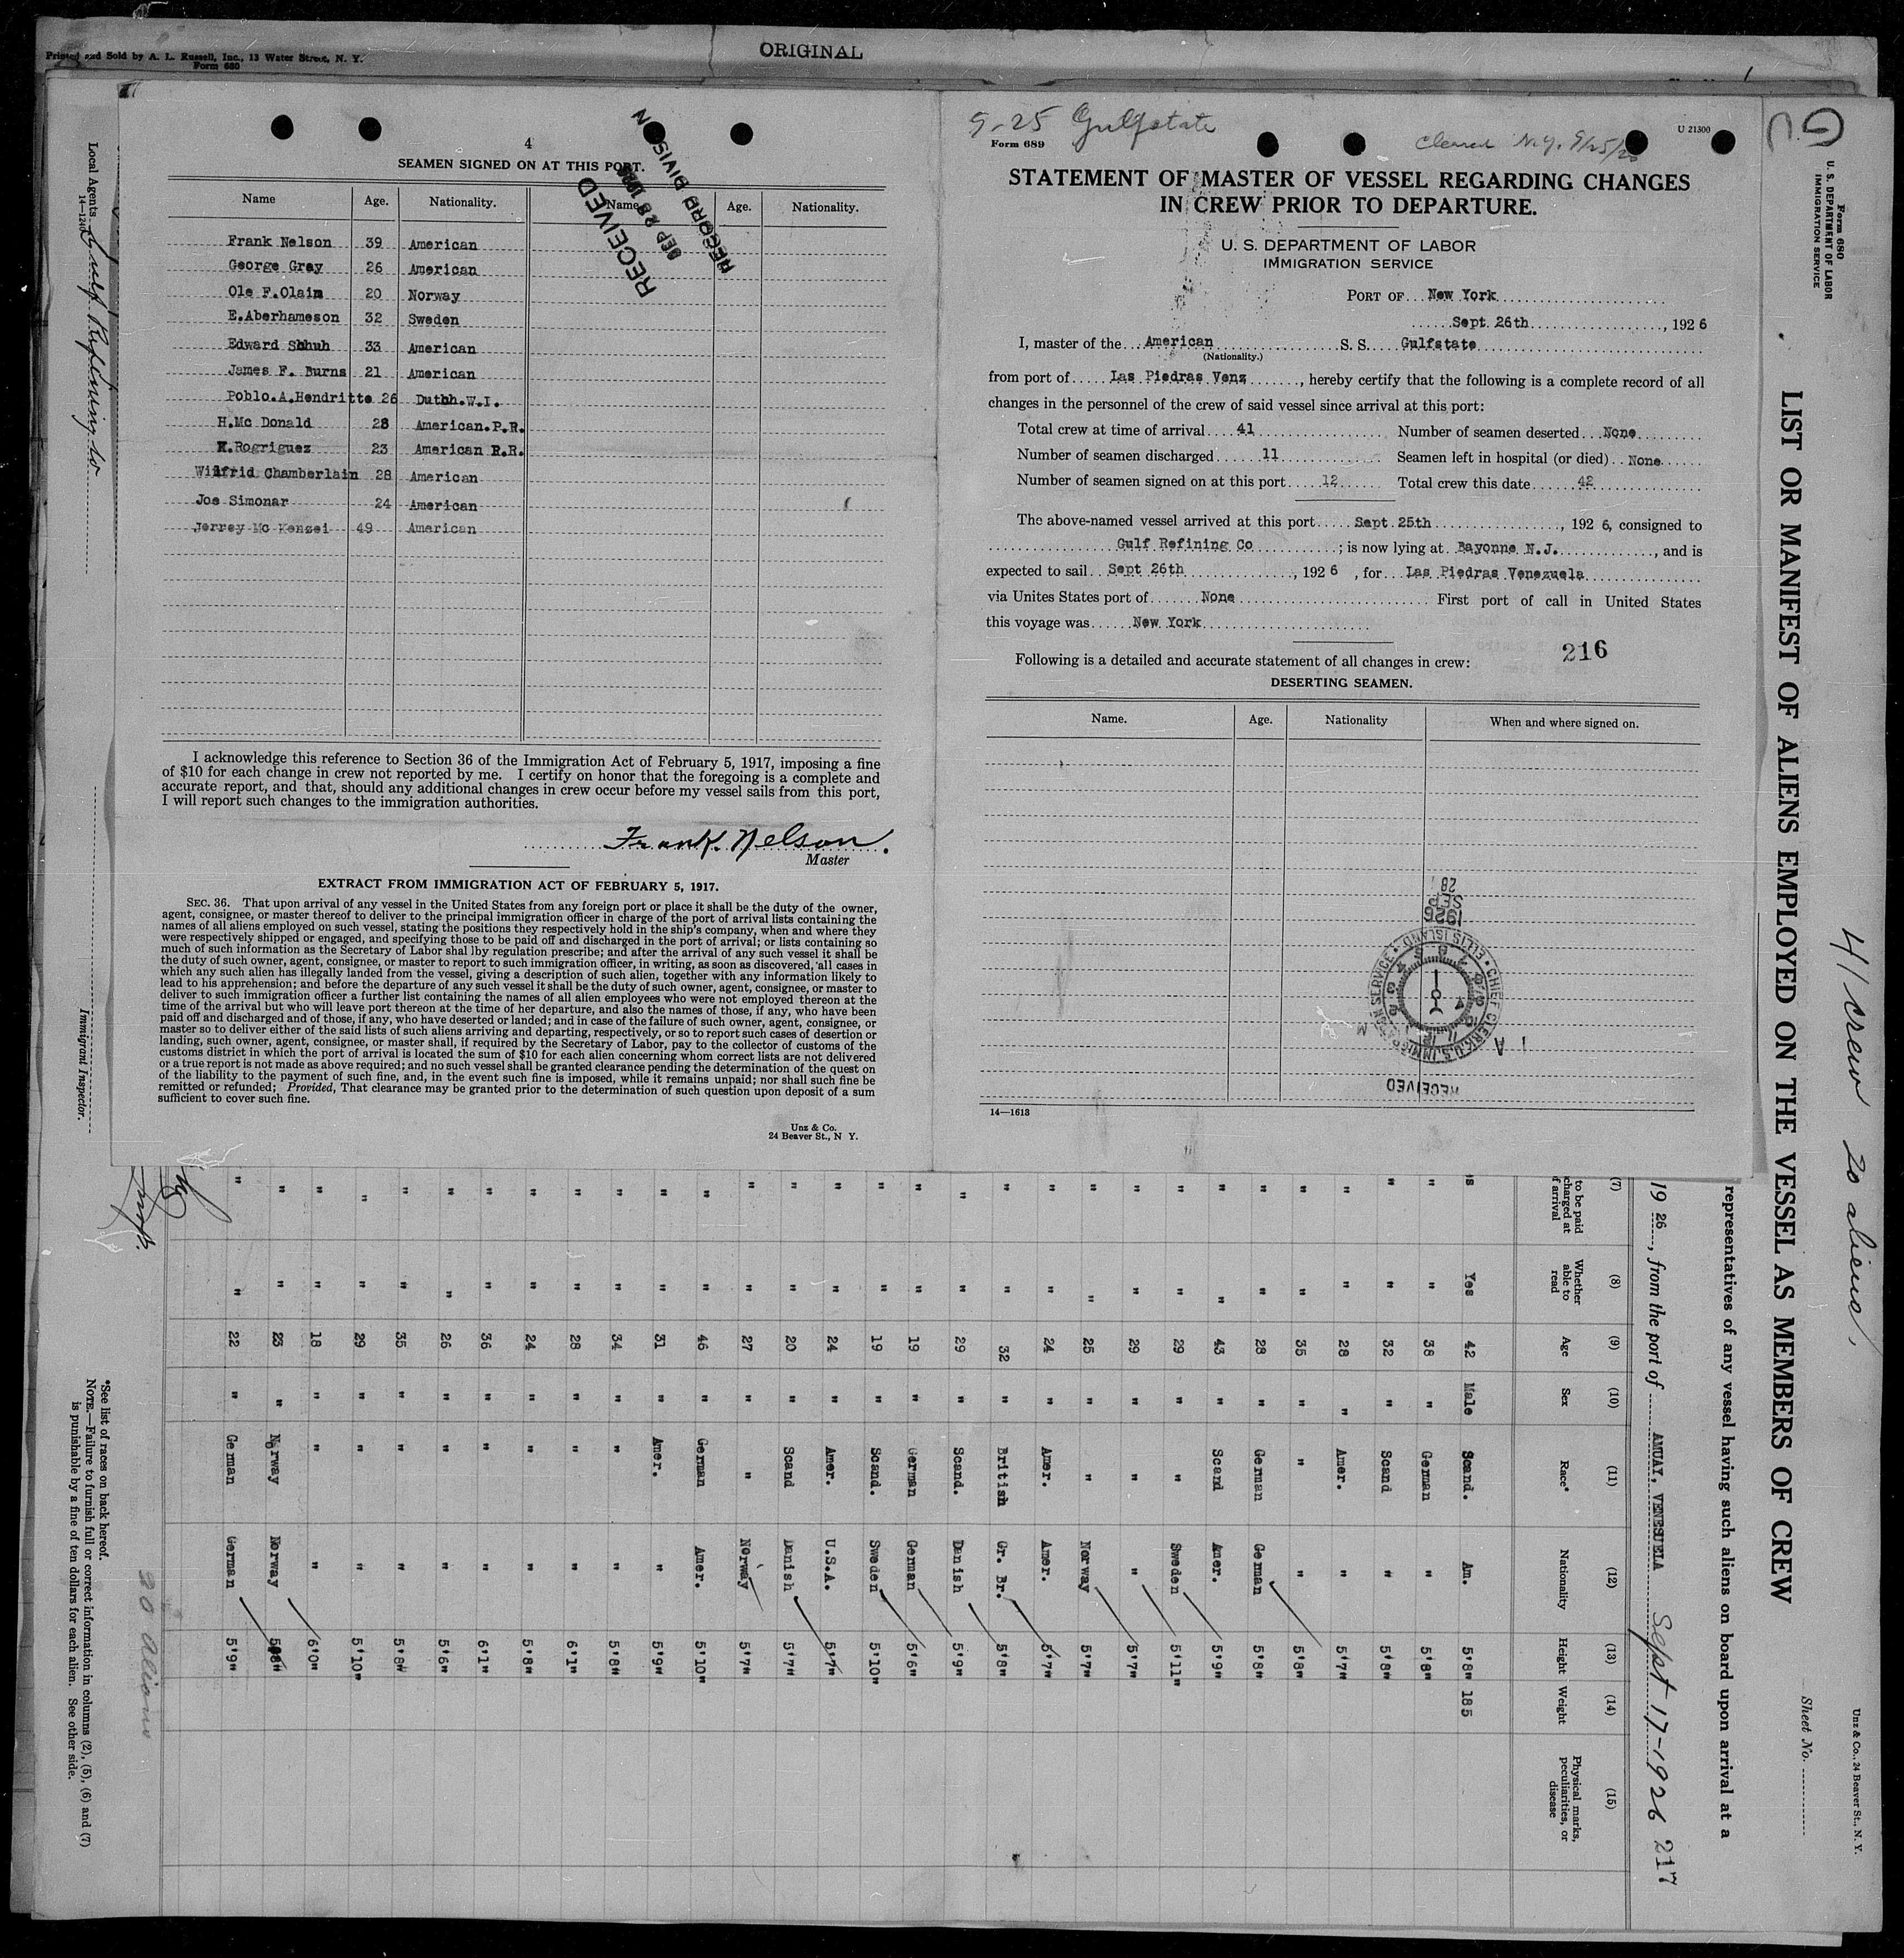 Printed and Sold by A. L. Russell, Inc., 13 Water Street, N. Y.
Form 680
ORIGINAL
4
SEAMEN SIGNED ON AT THIS PORT.
Name Age. Nationality. Name Age. Nationality.
Frank Nelson 39 American
George Grey 26 American
Ole F.Olaim 20 Norway
E.Aberhameson 32 Sweden
Edward Sbhuh 33 American
James F. Burns 21 American
Poblo.A.Hendritte 26 Dutbh.W.I.
H.Mc Donald 28 American.P.R.
K.Rogriguez 23 American P.R.
Wilfrid Chamberlain 28 American
Joe Simonar 24 American
Jerrey Mc Kenzei 49 American
RECEIVED
SEP 28 1926
RECORD DIVISION
I acknowledge this reference to Section 36 of the Immigration Act of February 5, 1917, imposing a fine
of $10 for each change in crew not reported by me. I certify on honor that the foregoing is a complete and
accurate report, and that, should any additional changes in crew occur before my vessel sails from this port,
I will report such changes to the immigration authorities.
Frank Nelson.
Master
EXTRACT FROM IMMIGRATION ACT OF FEBRUARY 5, 1917.
SEC. 36. That upon arrival of any vessel in the United States from any foreign port or place it shall be the duty of the owner,
agent, consignee, or master thereof to deliver to the principal immigration officer in charge of the port of arrival lists containing the
names of all aliens employed on such vessel, stating the positions they respectively hold in the ship's company, when and where they
were respectively shipped or engaged, and specifying those to be paid off and discharged in the port of arrival; or lists containing so
much of such information as the Secretary of Labor shal lby regulation prescribe; and after the arrival of any such vessel it shall be
the duty of such owner, agent, consignee, or master to report to such immigration officer, in writing, as soon as discovered, all cases in
which any such alien has illegally landed from the vessel, giving a description of such alien, together with any information likely to
lead to his apprehension; and before the departure of any such vessel it shall be the duty of such owner, agent, consignee, or master to
deliver to such immigration officer a further list containing the names of all alien employees who were not employed thereon at the
time of the arrival but who will leave port thereon at the time of her departure, and also the names of those, if any, who have been
paid off and discharged and of those, if any, who have deserted or landed; and in case of the failure of such owner, agent, consignee, or
master so to deliver either of the said lists of such aliens arriving and departing, respectively, or so to report such cases of desertion or
landing, such owner, agent, consignee, or master shall, if required by the Secretary of Labor, pay to the collector of customs of the
customs district in which the port of arrival is located the sum of $10 for each alien concerning whom correct lists are not delivered
or a true report is not made as above required; and no such vessel shall be granted clearance pending the determination of the quest on
of the liability to the payment of such fine, and, in the event such fine is imposed, while it remains unpaid; nor shall such fine be
remitted or refunded; Provided, That clearance may be granted prior to the determination of such question upon deposit of a sum
sufficient to cover such fine.
Unz & Co.
24 Beaver St., N Y.
9-25 Gulfstate
Form 689
Cleared N.Y. 9/25/26
U 21300
STATEMENT OF MASTER OF VESSEL REGARDING CHANGES
IN CREW PRIOR TO DEPARTURE.
U. S. DEPARTMENT OF LABOR
IMMIGRATION SERVICE
PORT OF New York
Sept 26th, 1926
I, master of the American S. S. Gulfstate
(Nationality.)
from port of Las Piedras Venz, hereby certify that the following is a complete record of all
changes in the personnel of the crew of said vessel since arrival at this port:
Total crew at time of arrival 41 Number of seamen deserted None
Number of seamen discharged 11 Seamen left in hospital (or died) None
Number of seamen signed on at this port 12 Total crew this date 42
The above-named vessel arrived at this port Sept 25th, 1926, consigned to
Gulf Refining Co; is now lying at Bayonne N.J., and is
expected to sail Sept 26th, 1926, for Las Piedras Venezuela
via Unites States port of None First port of call in United States
this voyage was New York
216
Following is a detailed and accurate statement of all changes in crew:
DESERTING SEAMEN.
Name. Age. Nationality When and where signed on.
28
SEP
1926
CHIEF CLERK, U.S. IMMIGRATION SERVICE • ELLIS ISLAND •
RECEIVED
14—1613
Form 680
U. S. DEPARTMENT OF LABOR
IMMIGRATION SERVICE
LIST OR MANIFEST OF ALIENS EMPLOYED ON THE VESSEL AS MEMBERS OF CREW
41 crew 20 aliens.
Sheet No.
Unz & Co., 24 Beaver St., N. Y.
representatives of any vessel having such aliens on board upon arrival at a
1926, from the port of AMUAY, VENESUELA Sept 17-1926 217
(7) (8) (9) (10) (11) (12) (13) (14) (15)
to be paid
charged at
f arrival
Whether able to read
Age
Sex
Race*
Nationality
Height
Weight
Physical marks, peculiarities, or disease
s Yes 42 Male Scand. Am. 5'8" 185
" " 38 " German " 5'8"
" " 32 " Scand " 5'8"
" " 28 " Amer. " 5'7"
" " 35 " " " 5'8"
" " 28 " German German 5'8"
" " 43 " Scand Amer. 5'9"
" " 29 " " Sweden 5'11"
" " 29 " " " 5'7"
" " 25 " " Norway 5'7"
" " 24 " Amer. Amer. 5'7"
" " 32 " British Gr. Br. 5'8"
" " 29 " Scand. Danish 5'9"
" " 19 " German German 5'6"
" " 19 " Scand. Sweden 5'10"
" " 24 " Amer. U.S.A. 5'7"
" " 20 " Scand Danish 5'7"
" " 27 " " Norway 5'7"
" " 46 " German Amer. 5'10"
" " 31 " Amer. " 5'9"
" " 34 " " " 5'8"
" " 28 " " " 6'1"
" " 24 " " " 5'8"
" " 36 " " " 6'1"
" " 26 " " " 5'6"
" " 35 " " " 5'8"
" " 29 " " " 5'10"
" " 18 " " " 6'0"
" " 23 " Norway Norway 5'8"
" " 22 " German German 5'9"
20 Aliens
*See list of races on back hereof.
NOTE.—Failure to furnish full or correct information in columns (2), (5), (6) and (7)
is punishable by a fine of ten dollars for each alien. See other side.
Local Agents Gulf Refining Co
14—1240
Immigrant Inspector.